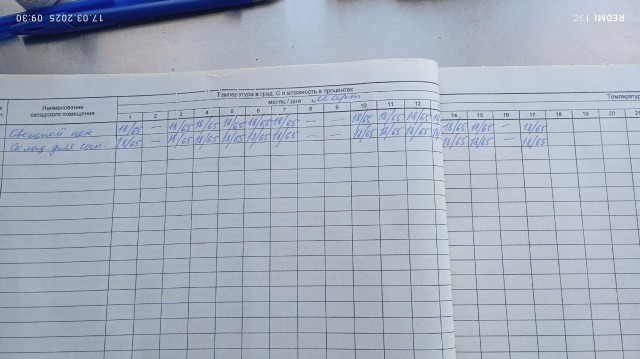 17.03.2025 09:30
REDMI 13C
Температура в град. С и влажность в процентах
Температу
Наименование складского помещения
месяц / дни март
1 2 3 4 5 6 7 8 9 10 11 12 14 15 16 17 18 19 20 21
Овощной цех 18/65 — 18/65 18/65 18/65 18/65 18/65 — — 18/65 18/65 18/65 18/65 18/65 — 18/65
Склад для 18/65 — 18/65 18/65 18/65 18/65 18/65 — — 18/65 18/65 18/65 18/65 18/65 — 18/65